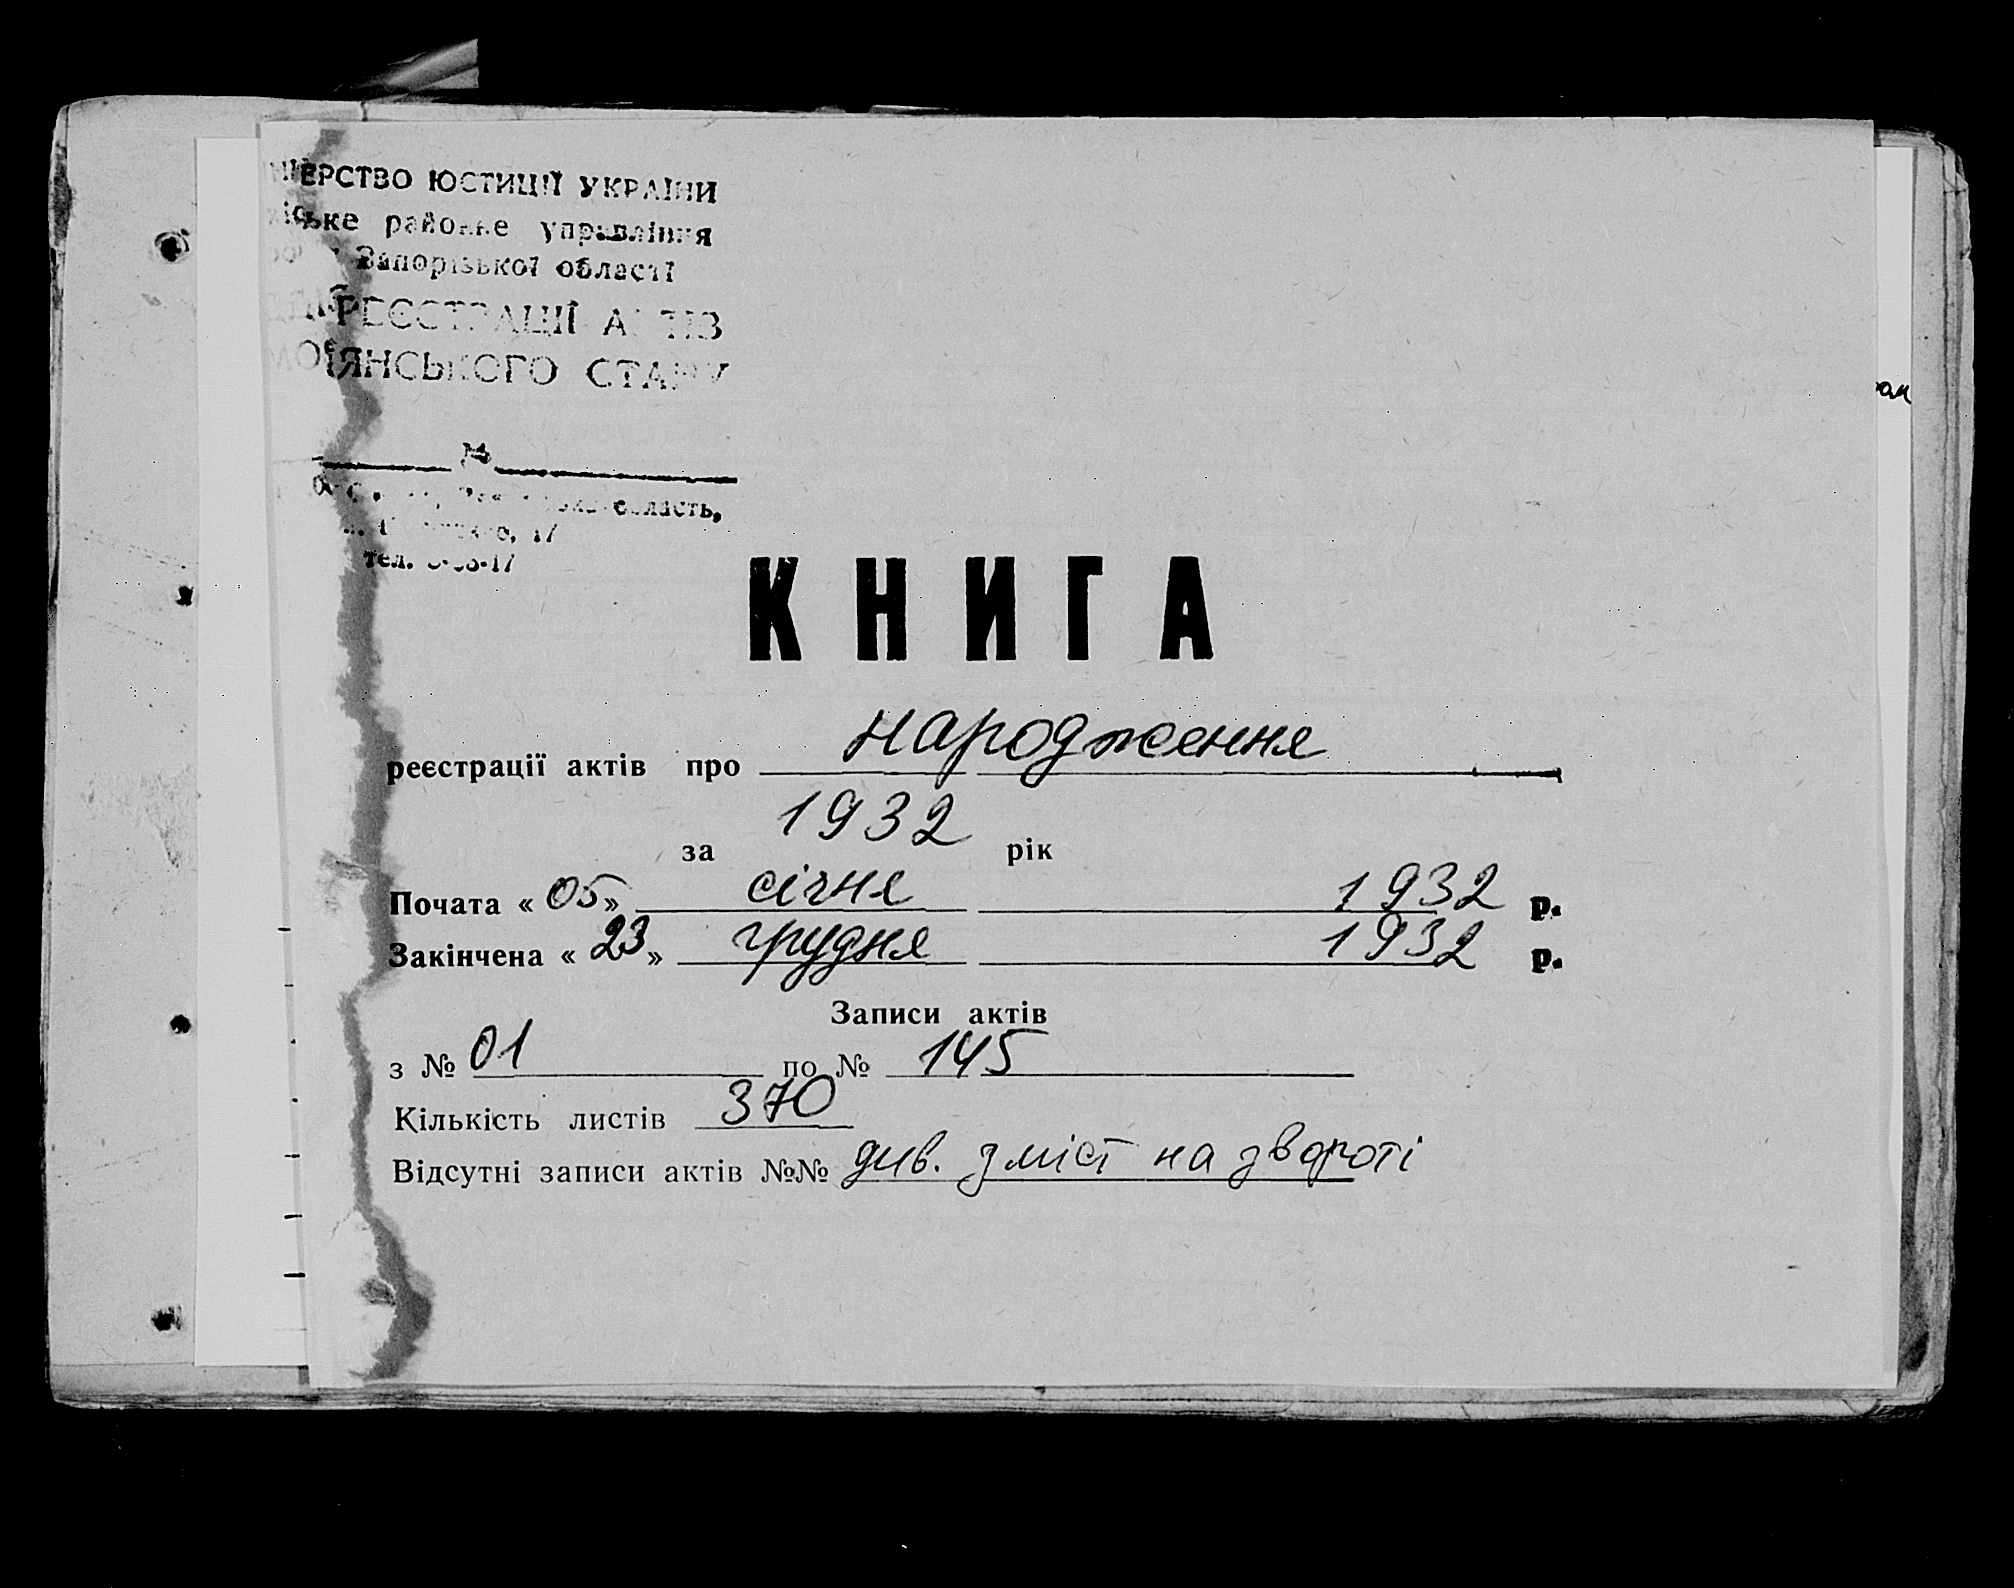 ЕРСТВО ЮСТИЦІЇ УКРАЇНИ
ське районне управління
Запорізької області
РЕЄСТРАЦІЇ АКТІВ
ЯНСЬКОГО СТАНУ
№
область,
17
тел.
ом
КНИГА
реєстрації актів про народження
за 1932 рік
Почата «05» січня 1932 р.
Закінчена «23» грудня 1932 р.
Записи актів
з № 01 по № 145
Кількість листів 370
Відсутні записи актів №№ див. зміст на звороті